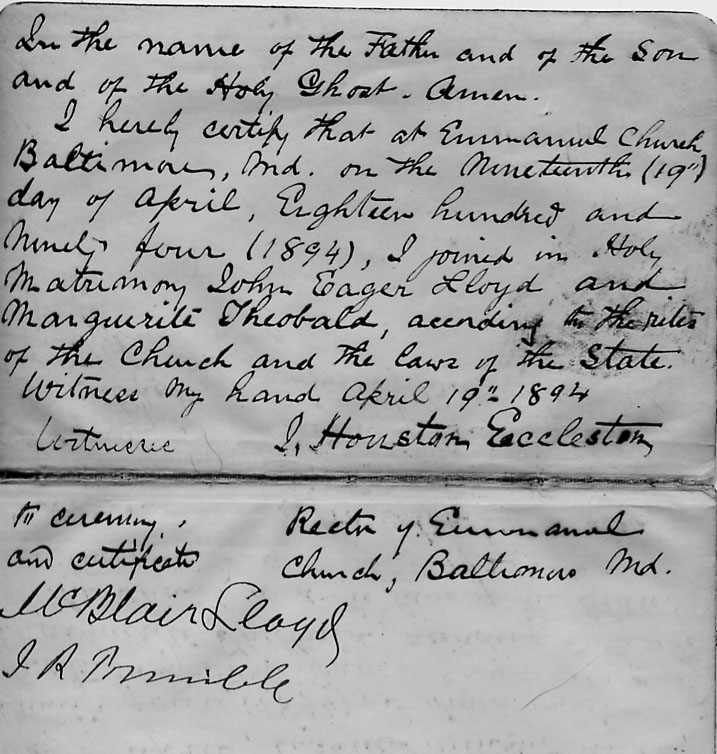 In the name of the Father and of the Son
and of the Holy Ghost - Amen.
I hereby certify that at Emmanuel Church,
Baltimore, Md. on the Nineteenth (19")
day of April, Eighteen hundred and
Ninety four (1894), I joined in Holy
Matrimony John Eager Lloyd and
Marguerite Theobald, according to the rites
of the Church and the laws of the State.
Witness my hand April 19" 1894
Witnesses J. Houston Eccleston
to ceremony, Rector of Emmanuel
and certificate Church, Baltimore Md.
McBlair Lloyd